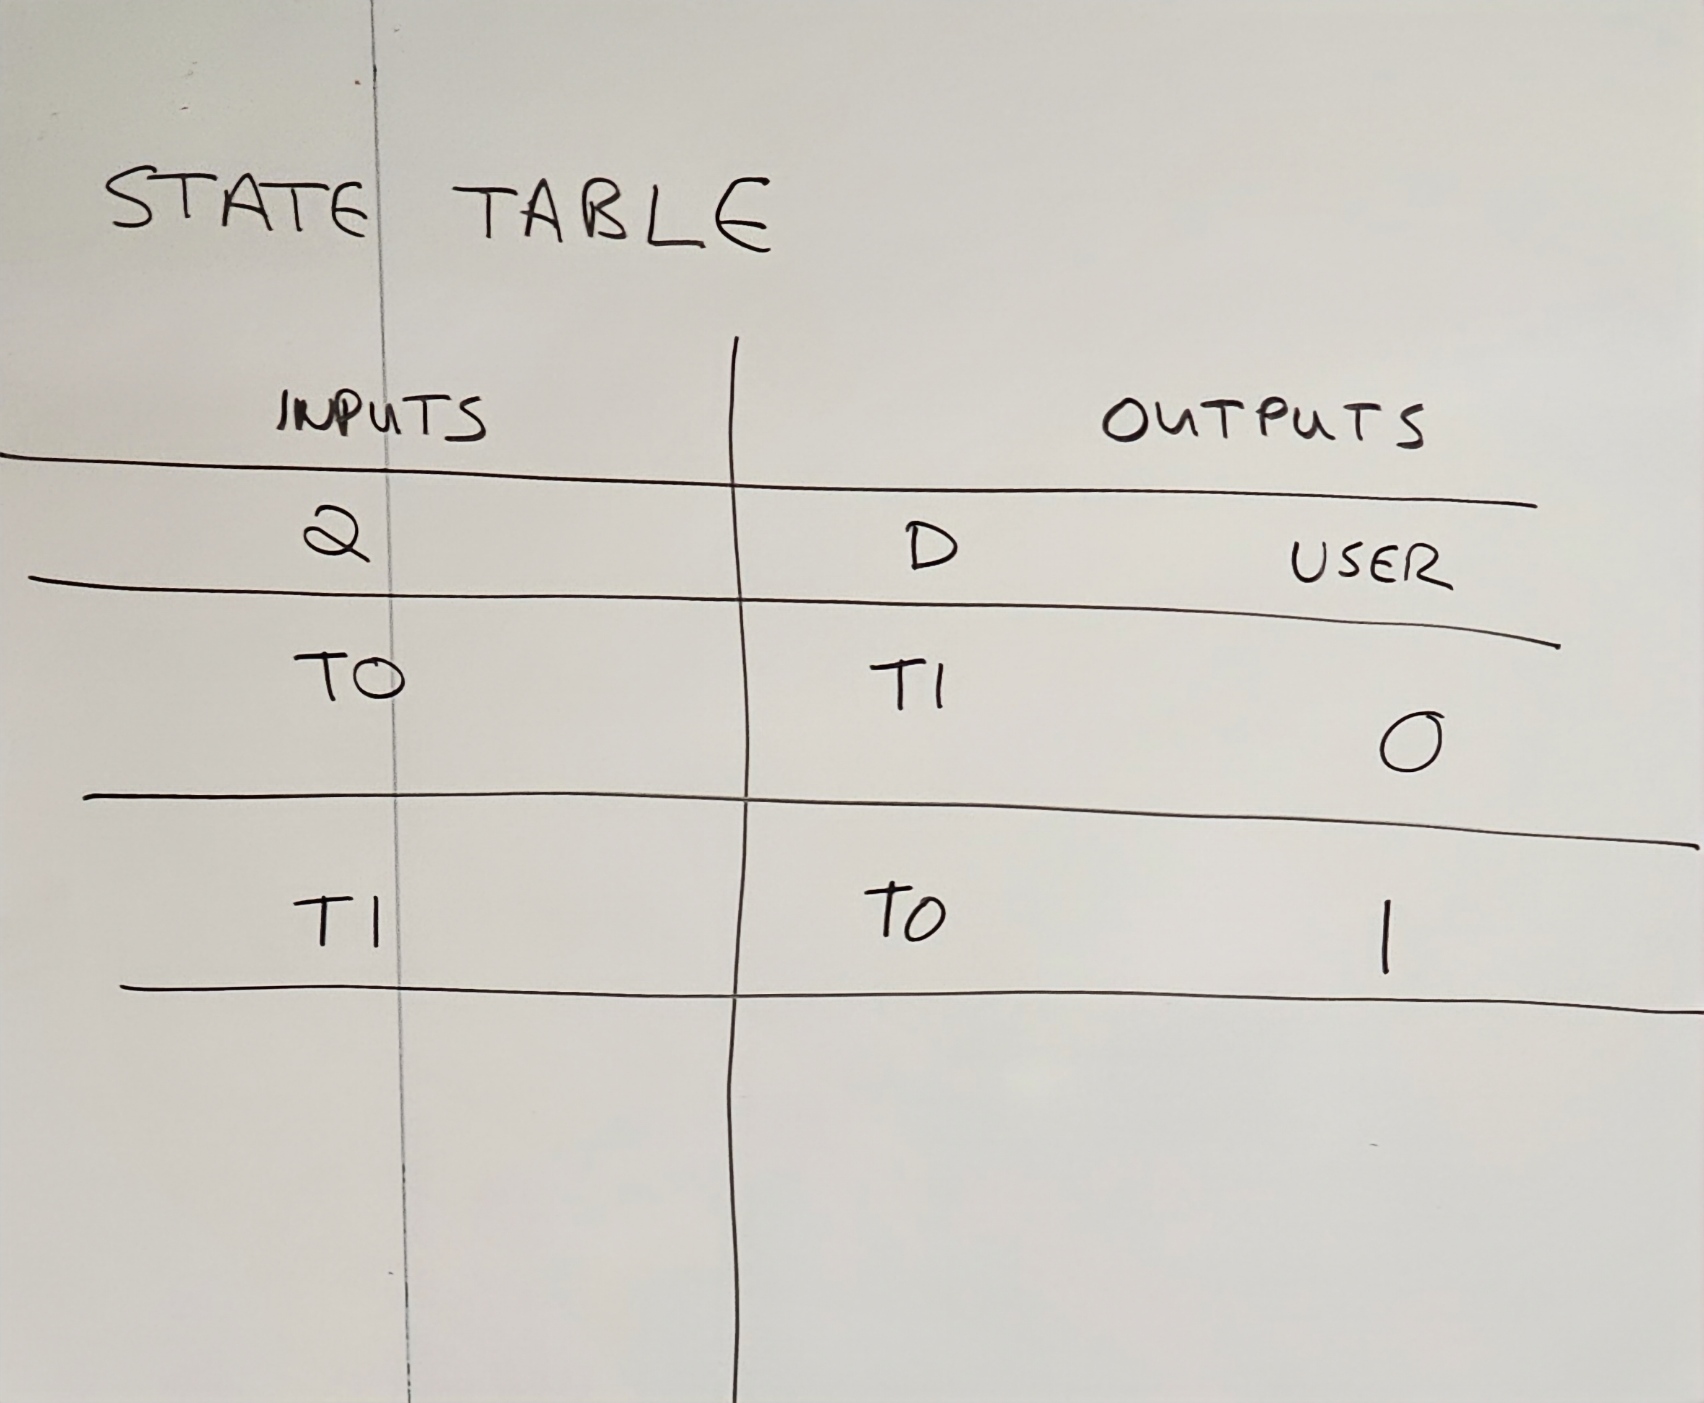 STATE TABLE
INPUTS OUTPUTS
Q D USER
T0 T1 0
T1 T0 1